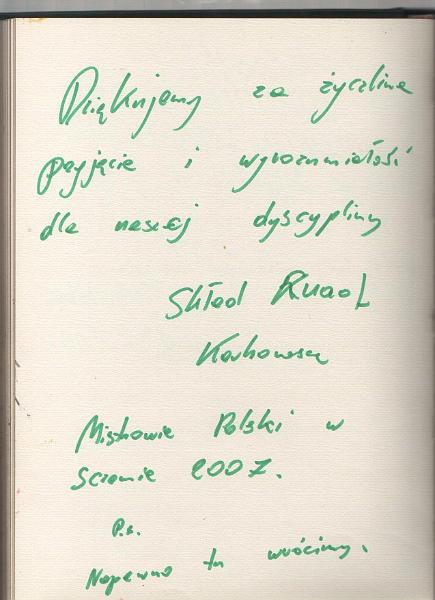 Dziękujemy za życzliwe
przyjęcie i wyrozumiałość
dla naszej dyscypliny
Skład
Mistrzowie Polski w
Sezonie 2007.
P.s.
Napewno tu wrócimy.